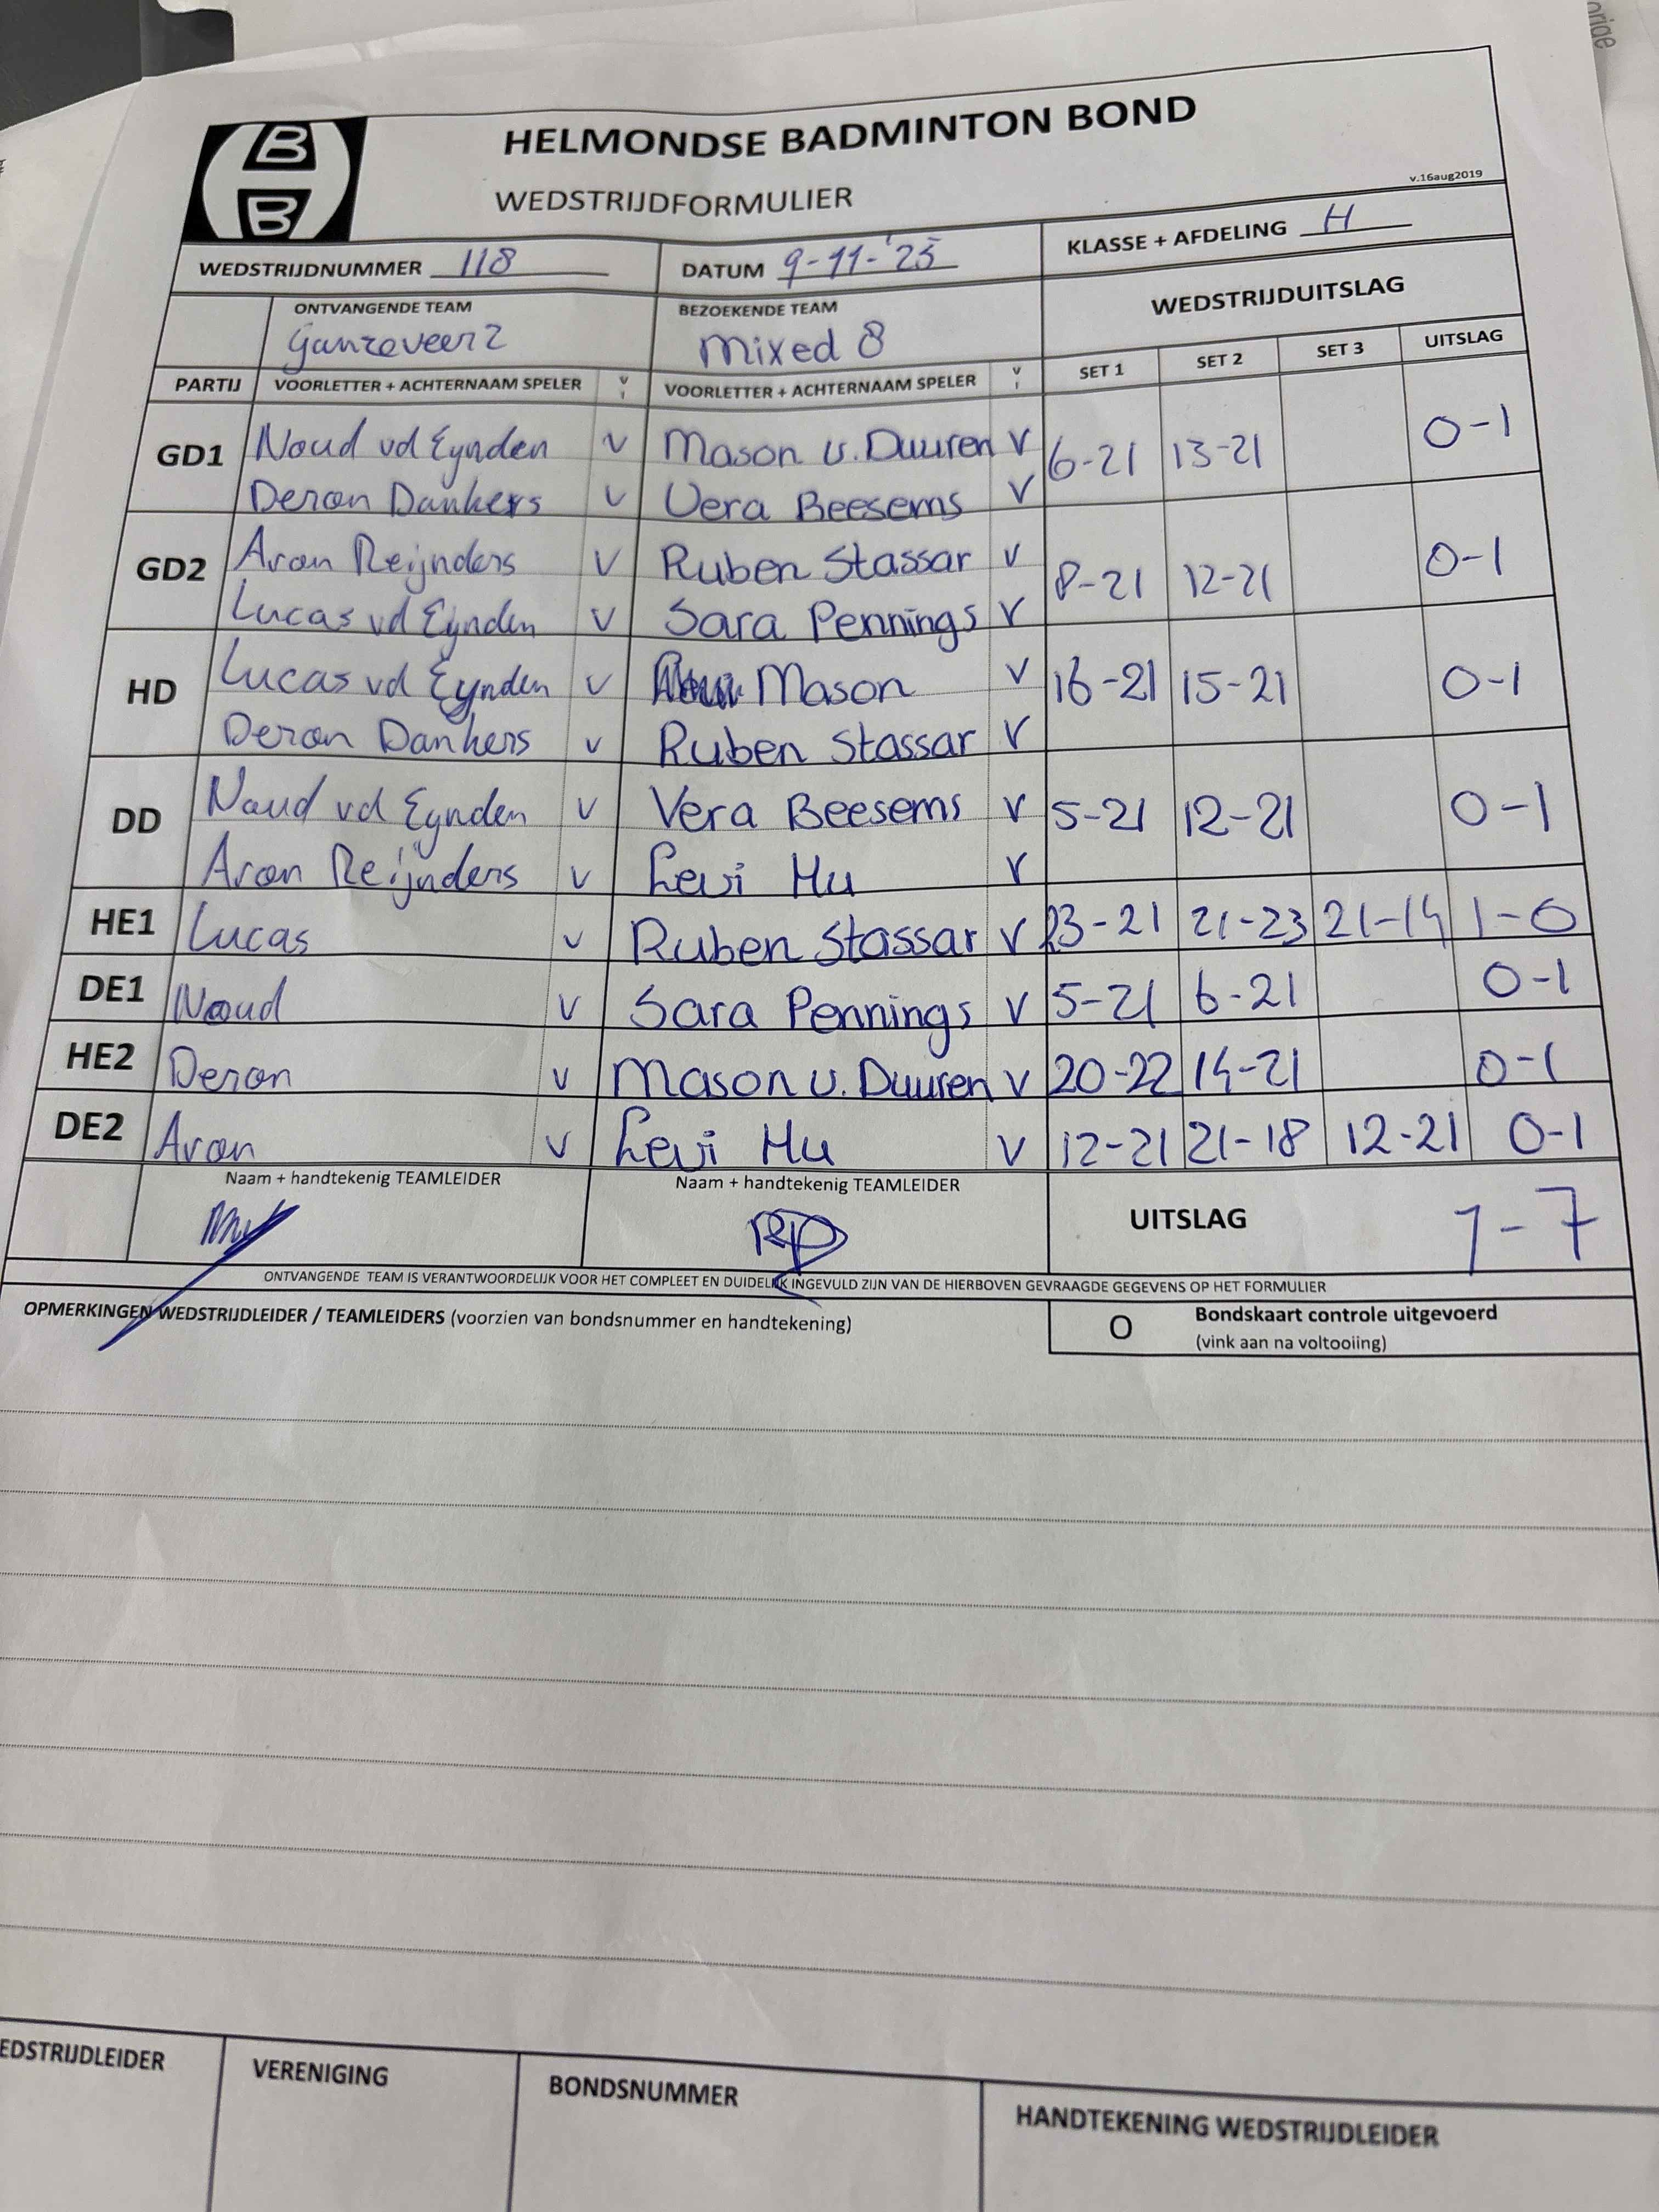 orige
B
B
HELMONDSE BADMINTON BOND
WEDSTRIJDFORMULIER
v.16aug2019
WEDSTRIJDNUMMER 118 DATUM 9-11-'25 KLASSE + AFDELING H
ONTVANGENDE TEAM BEZOEKENDE TEAM WEDSTRIJDUITSLAG
Ganzeveer 2 Mixed 8
PARTIJ VOORLETTER + ACHTERNAAM SPELER V VOORLETTER + ACHTERNAAM SPELER V SET 1 SET 2 SET 3 UITSLAG
GD1 Noud vd Eynden V Mason v. Duuren V 6-21 13-21 0-1
Deron Dankers V Vera Beesems V
GD2 Aron Reijnders V Ruben Stassar V 8-21 12-21 0-1
Lucas vd Eynden V Sara Pennings V
HD Lucas vd Eynden V Mason V 16-21 15-21 0-1
Deron Dankers V Ruben Stassar V
DD Noud vd Eynden V Vera Beesems V 5-21 12-21 0-1
Aron Reijnders V Levi Hu V
HE1 Lucas V Ruben Stassar V 23-21 21-23 21-14 1-0
DE1 Noud V Sara Pennings V 5-21 6-21 0-1
HE2 Deron V Mason v. Duuren V 20-22 14-21 0-1
DE2 Aron V Levi Hu V 12-21 21-18 12-21 0-1
Naam + handtekenig TEAMLEIDER Naam + handtekenig TEAMLEIDER UITSLAG 1-7
ONTVANGENDE TEAM IS VERANTWOORDELIJK VOOR HET COMPLEET EN DUIDELIJK INGEVULD ZIJN VAN DE HIERBOVEN GEVRAAGDE GEGEVENS OP HET FORMULIER
OPMERKINGEN WEDSTRIJDLEIDER / TEAMLEIDERS (voorzien van bondsnummer en handtekening) O Bondskaart controle uitgevoerd
(vink aan na voltooiing)
EDSTRIJDLEIDER VERENIGING BONDSNUMMER HANDTEKENING WEDSTRIJDLEIDER